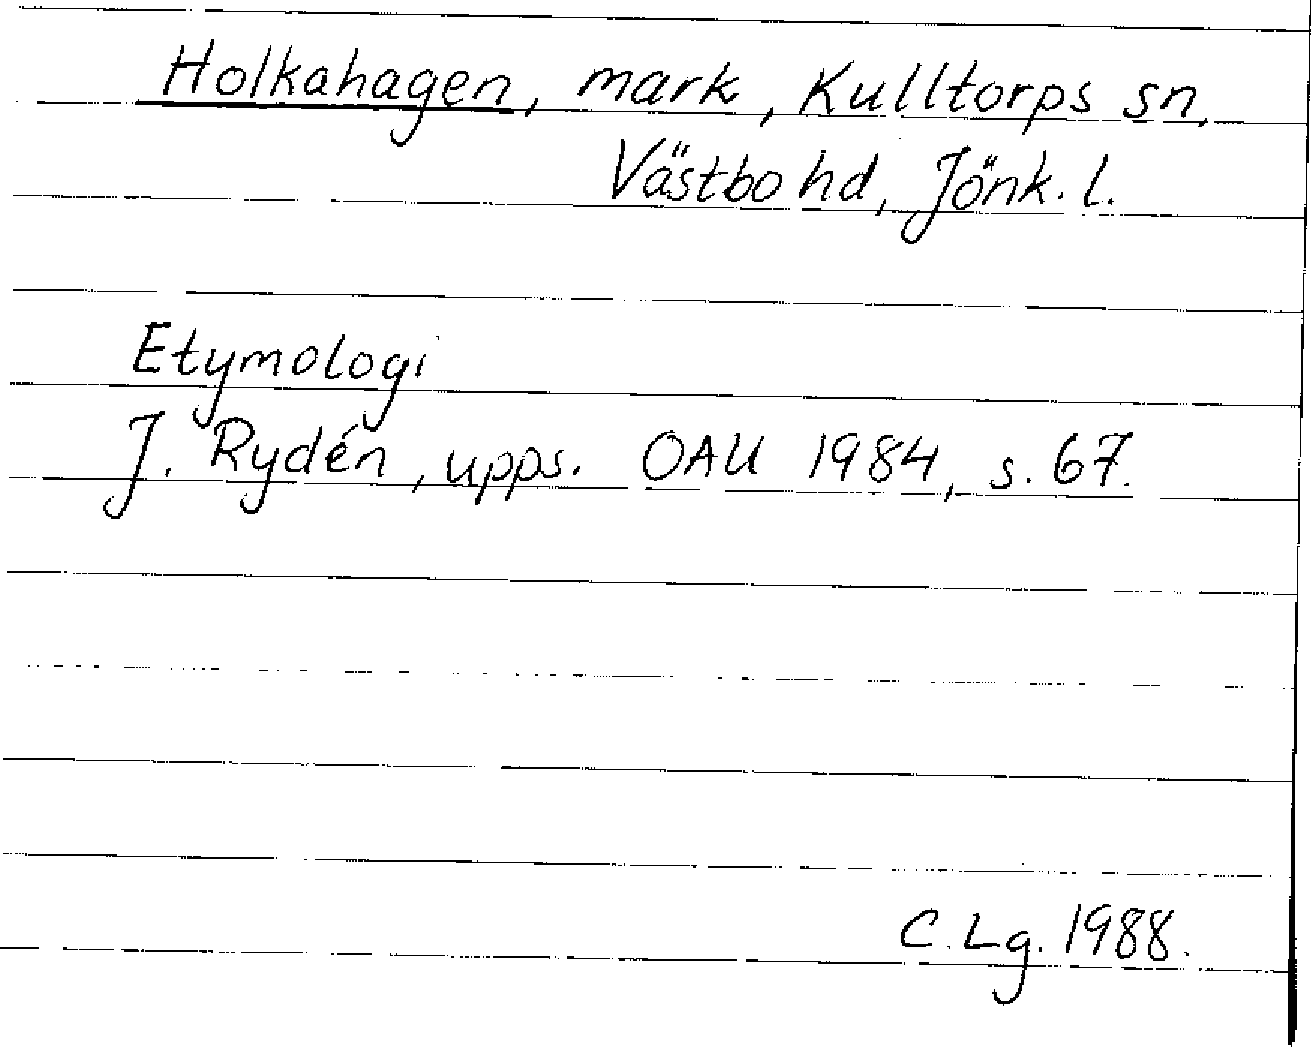 Holkahagen, mark, Kulltorps sn,
Västbo hd, Jönk. l.
Etymologi
J. Rydén, upps. OAU 1984, s. 67.
C. Lg. 1988.